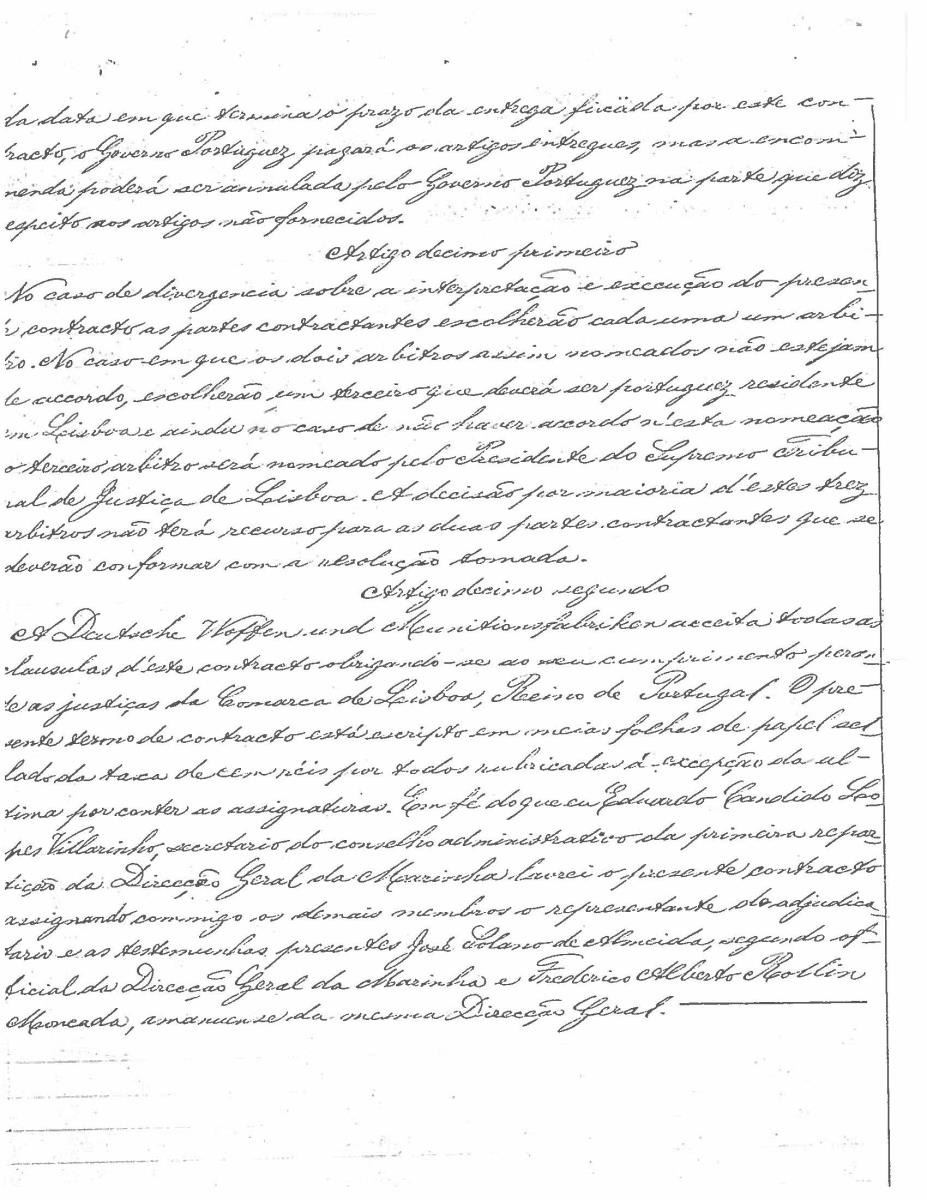 da data em que termina o prazo da entrega ficáda por este con-
tracto, o Governo Portuguez pagará os artigos entregues, mas a encom-
menda poderá ser annulada pelo Governo Portuguez na parte que diz
espeito aos artigos não fornecidos.
Artigo decimo primeiro
No caso de divergencia sobre a interpretação e execução do presen-
contracto as partes contractantes escolherão cada uma um arbi-
tro. No caso em que os dois arbitros assim nomeados não estejam
de accordo, escolherão um terceiro que deverá ser portuguez residente
em Lisboa e ainda no caso de não haver accordo n'esta nomeação
o terceiro arbitro será nomeado pelo Presidente do Supremo Tribu-
nal de Justiça de Lisboa. A decisão por maioria d'estes trez
arbitros não terá recurso para as duas partes contractantes que se
deverão conformar com a resolução tomada.
Artigo decimo segundo
A Deutsche Waffen und Munitionsfabriken acceita todas as
clausulas d'este contracto obrigando-se ao seu cumprimento peran-
te as justiças da Comarca de Lisboa, Reino de Portugal. O pre-
sente termo de contracto está escripto em meias folhas de papel sel-
lado da taxa de cem réis por todos rubricadas á excepção da ul-
tima por conter as assignaturas. Em fé do que eu Eduardo Candido Lo-
pes Villarinho, secretario do conselho administrativo da primeira repar-
tição da Direcção Geral da Marinha lavrei o presente contracto
assignando commigo os demais membros o representante do adjudica-
tario e as testemunhas presentes José Solano de Almeida, segundo of-
ficial da Direcção Geral da Marinha e Frederico Alberto Rollin
Moncada, amanuense da mesma Direcção Geral.